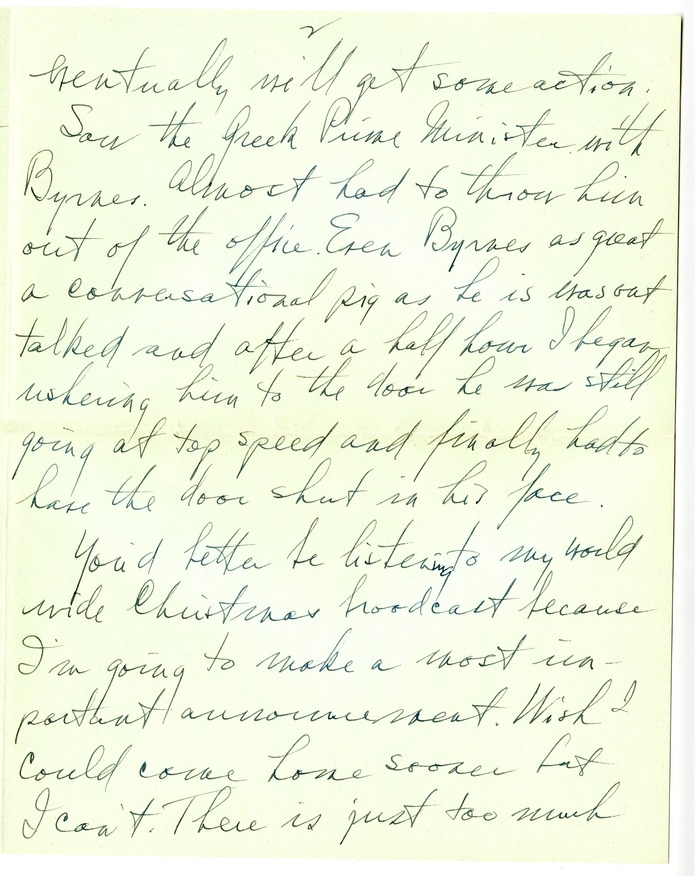 2
eventually we'll get some action.
Saw the Greek Prime Minister with
Byrnes. Almost had to throw him
out of the office. Even Byrnes as great
a conversational pig as he is was out
talked and after a half hour I began
ushering him to the door he was still
going at top speed and finally had to
have the door shut in his face.
You'd better be listening to my world
wide Christmas broadcast because
I'm going to make a most im-
portant announcement. Wish I
could come home sooner but
I can't. There is just too much